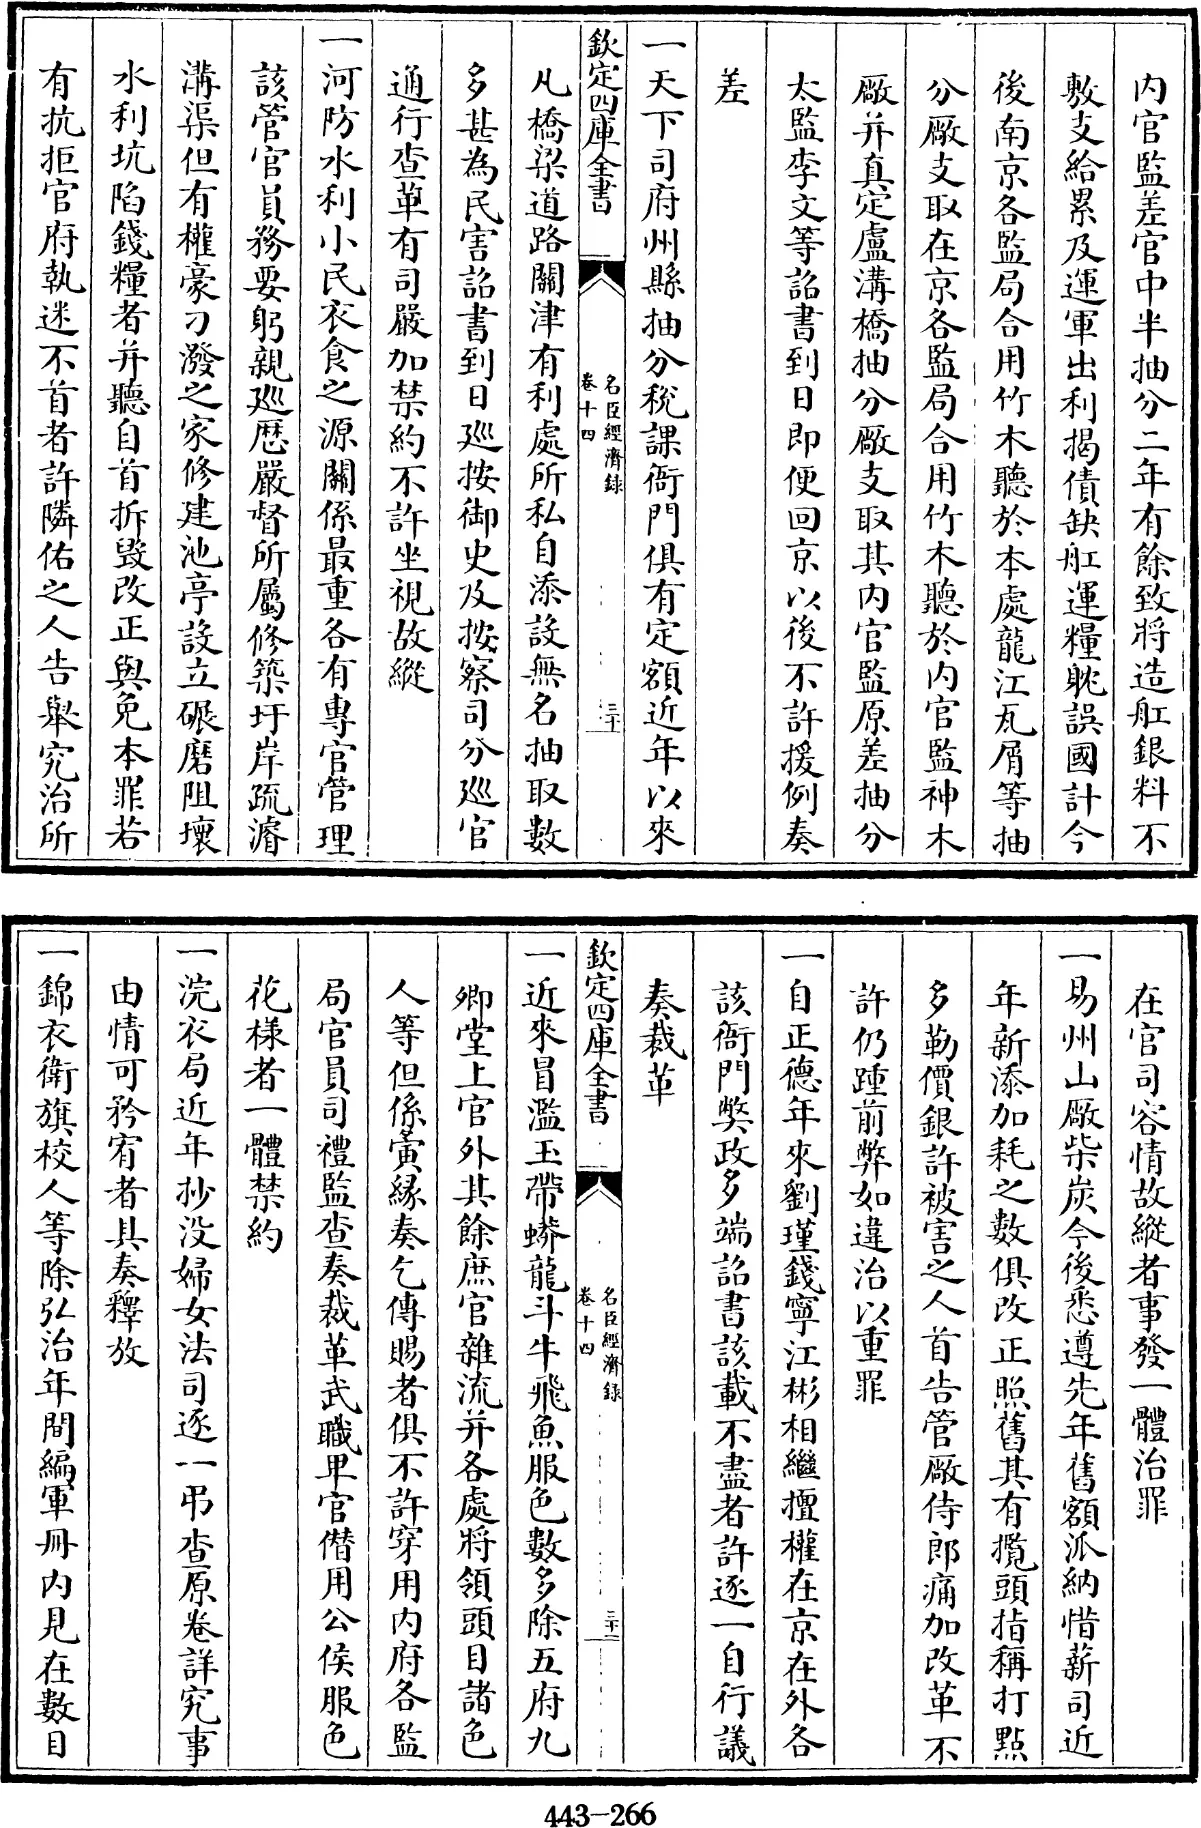 内官監差官中半抽分二年有餘致將造舡銀料不
敷支給累及運軍出利揭債缺舡運糧躭誤國計今
後南京各監局合用竹木聽於本處龍江瓦屑等抽
分廠支取在京各監局合用竹木聽於内官監神木
廠并真定盧溝橋抽分廠支取其内官監原差抽分
太監李文等詔書到日即便回京以後不許援例奏
差
一天下司府州縣抽分稅課衙門俱有定額近年以來
欽定四庫全書
名臣經濟録
卷十四
三十
凡橋梁道路關津有利處所私自添設無名抽取數
多甚為民害詔書到日廵按御史及按察司分廵官
通行查革有司嚴加禁約不許坐視故縱
一河防水利小民衣食之源關係最重各有專官管理
該管官員務要躬親廵歴嚴督所屬修築圩岸疏濬
溝渠但有權豪刁潑之家修建池亭設立碾磨阻壞
水利坑陷錢糧者并聽自首拆毀改正與免本罪若
有抗拒官府執迷不首者許隣佑之人告舉究治所
在官司容情故縱者事發一體治罪
一易州山廠柴炭今後悉遵先年舊額派納惜薪司近
年新添加耗之數俱改正照舊其有攬頭指稱打點
多勒價銀許被害之人首告管廠侍郎痛加改革不
許仍踵前弊如違治以重罪
一自正德年來劉瑾錢寧江彬相繼擅權在京在外各
該衙門弊政多端詔書該載不盡者許逐一自行議
奏裁革
欽定四庫全書
名臣經濟録
卷十四
三十一
一近來冒濫玉帶蟒龍斗牛飛魚服色數多除五府九
卿堂上官外其餘庶官雜流并各處將領頭目諸色
人等但係夤縁奏乞傳賜者俱不許穿用内府各監
局官員司禮監查奏裁革武職卑官僭用公侯服色
花様者一體禁約
一浣衣局近年抄没婦女法司逐一弔查原卷詳究事
由情可矜宥者具奏釋放
一錦衣衛旗校人等除弘治年間編軍冊内見在數目
443-266